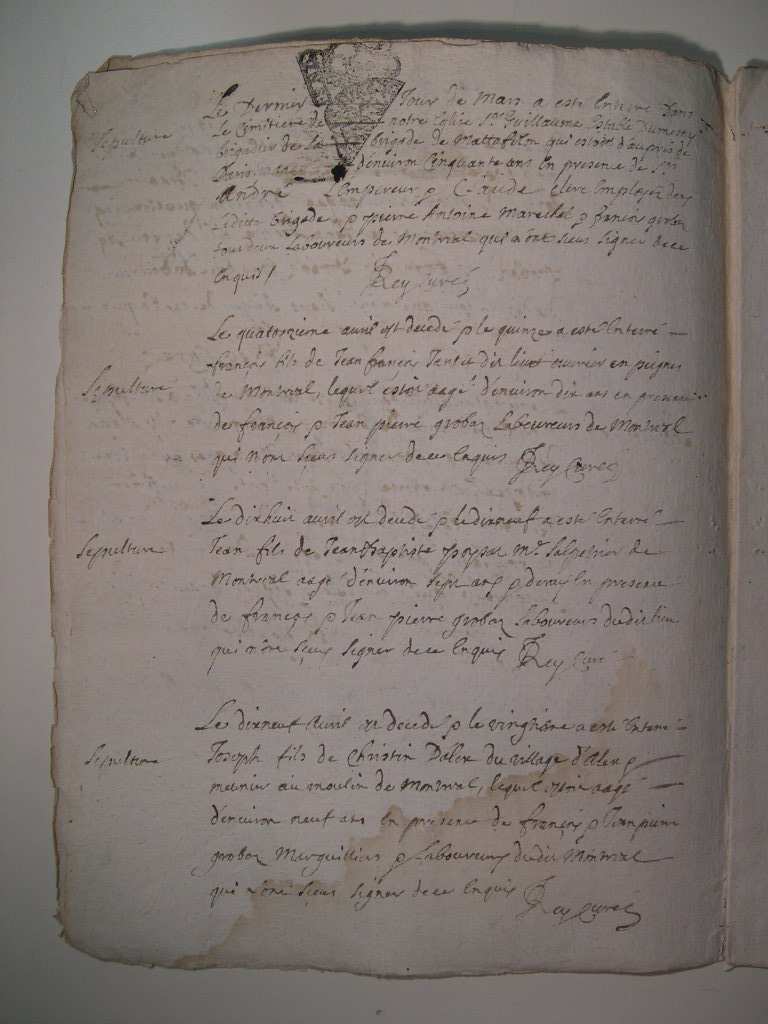 Sepulture
Le Dernier Jour de Mars a esté Enterré Dans
Le Cimitiere de notre Eglise Sr Guillaume
brigadier de La brigade de Mattafelon qui estoit d'aupres de
d'environ Cinquante ans en presence de Sr
André L'Empereur & Claude employez dans
Ladite brigade & pierre Antoine Marechal & françois grobon
tous deux Laboureurs de Montreal qui n'ont sceus signer de ce
Enquis /
Rey Curé
Sepulture
Le quatorzieme avril est decedé & le quinze a esté Enterré
françois fils de Jean françois ouvrier en peignes
de Montreal, lequel estoit aagé d'environ dix ans en presence
de françois & Jean pierre grobon Laboureurs de Montreal
qui n'ont sceus signer de ce Enquis Rey Curé
Sepulture
Le dixhuit avril est decedé & le dixneuf a esté Enterré
Jean fils de Jean Baptiste Me Salpetrier de
Montreal aagé d'environ sept ans & demy En presence
de françois & Jean pierre grobon Laboureurs dudit lieu
qui n'ont sceus signer de ce Enquis Rey Curé
Sepulture
Le dixneuf Avril est decedé & le vingtiéme a esté Enterré
Joseph fils de Christin du village
meunier au moulin de Montreal, lequel estoit aagé
d'environ neuf ans En presence de françois & Jean pierre
grobon Marguilliers & Laboureurs dudit Montreal
qui n'ont sceus signer de ce Enquis Rey Curé